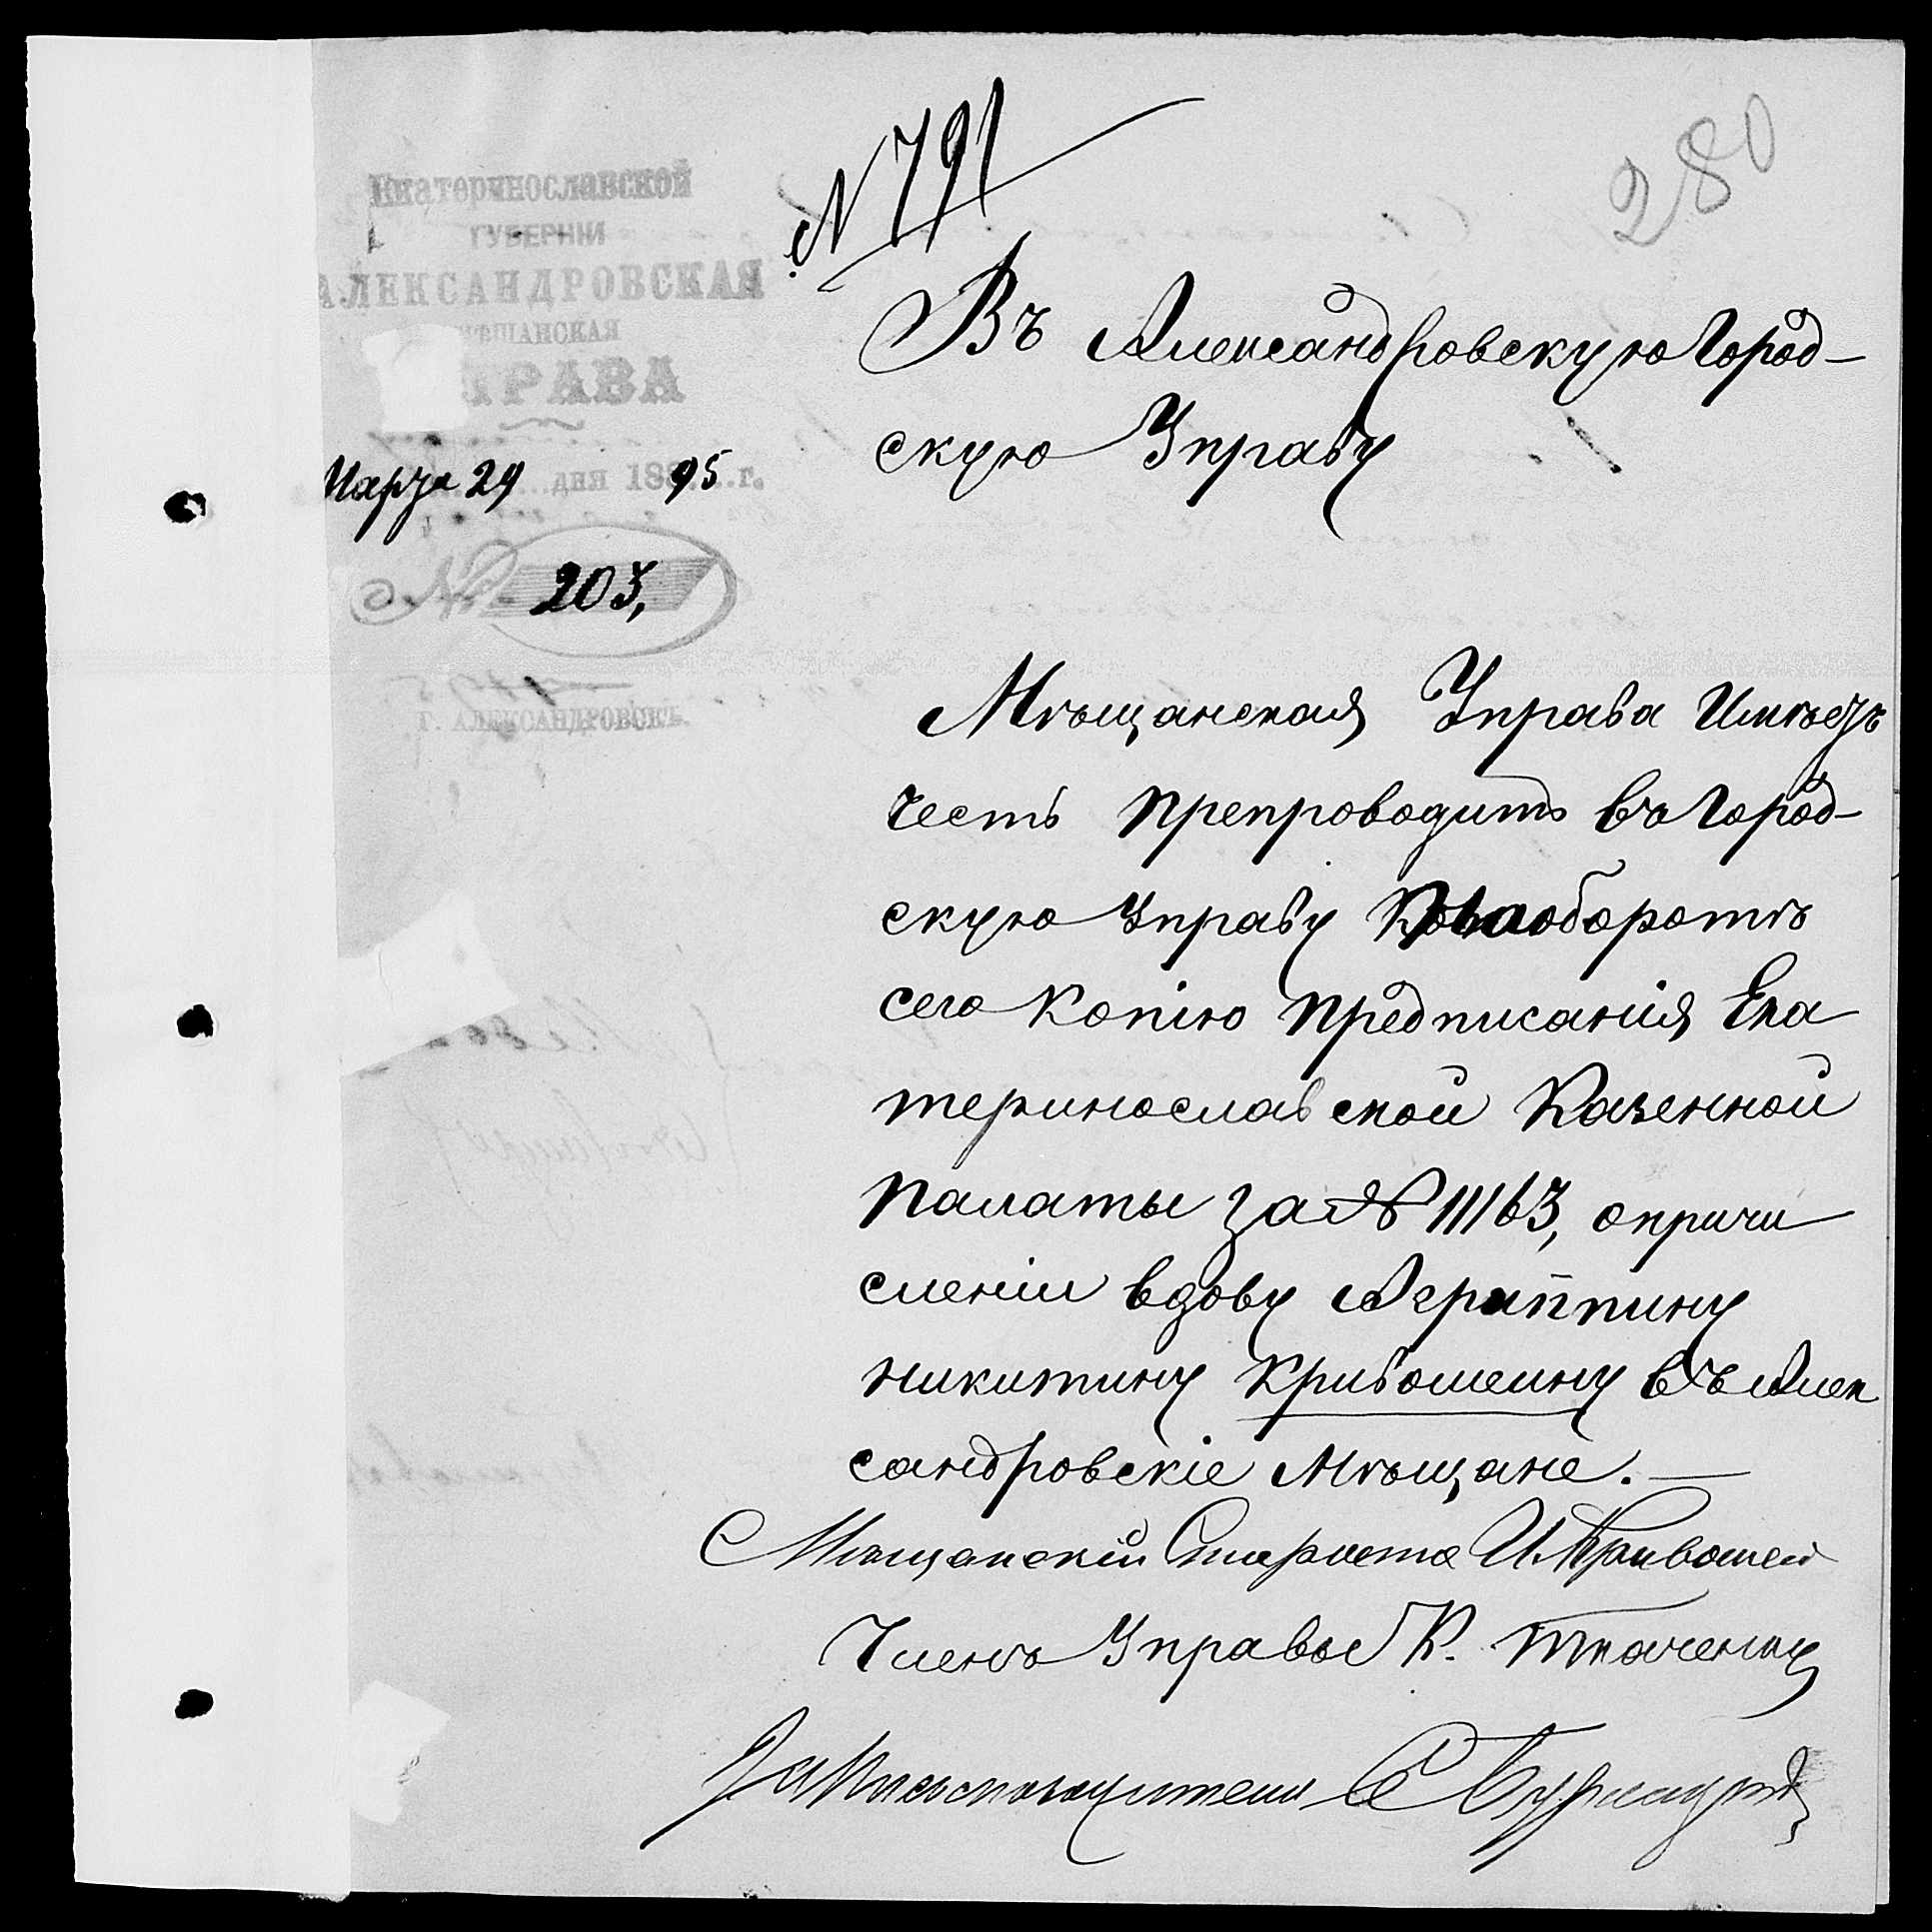 N 791
280
Екатеринославской
ГУБЕРНІИ
АЛЕКСАНДРОВСКАЯ
ѢЩАНСКАЯ
ПРАВА
Марта 29 дня 188 95 г.
№ 203,
Г. АЛЕКСАНДРОВСКЪ.
Въ Александровскую Город-
скую Управу
Мѣщанская Управа Имѣетъ
честь препроводить въ Город-
скую Управу наоборотѣ
сего Копію предписанія Ека
теринославской Казенной
Палаты за № 11163, опричи
сленіи вдову Агриппину
Никитину Кривошеину въ Алек
сандровскіе Мѣщане.—
Мѣщанскій Староста И. Кривошей
Членъ Управы К. Ткаченко
За Письмоводителя